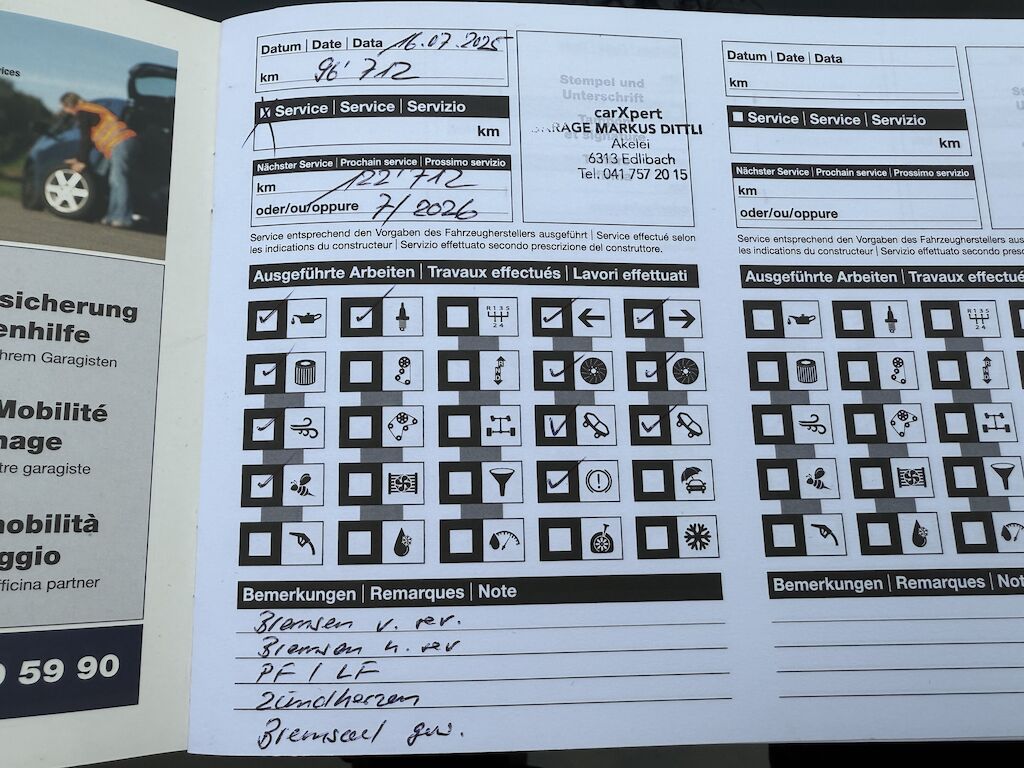 rvices
sicherung
enhilfe
hrem Garagisten
Mobilité
nage
tre garagiste
nobilità
ggio
fficina partner
59 90
Datum | Date | Data 16.07.2025
km 96'712
x Service | Service | Servizio
km
Nächster Service | Prochain service | Prossimo servizio
km 122'712
oder/ou/oppure 7/2026
Stempel und
Unterschrift
carXpert
GARAGE MARKUS DITTLI
Akelei
6313 Edlibach
Tel. 041 757 20 15
Service entsprechend den Vorgaben des Fahrzeugherstellers ausgeführt | Service effectué selon
les indications du constructeur | Servizio effettuato secondo prescrizione del construttore.
Ausgeführte Arbeiten | Travaux effectués | Lavori effettuati
R 1 3 5
2 4
Bemerkungen | Remarques | Note
Bremsen v. rev.
Bremsen h. rev
PF / LF
Zündkerzen
Bremsoel gew.
Datum | Date | Data
km
Service | Service | Servizio
km
Nächster Service | Prochain service | Prossimo servizio
km
oder/ou/oppure
Service entsprechend den Vorgaben des Fahrzeugherstellers aus
les indications du constructeur | Servizio effettuato secondo presc
Ausgeführte Arbeiten | Travaux effectué
R 1 3 5
2 4
Bemerkungen | Remarques | Not